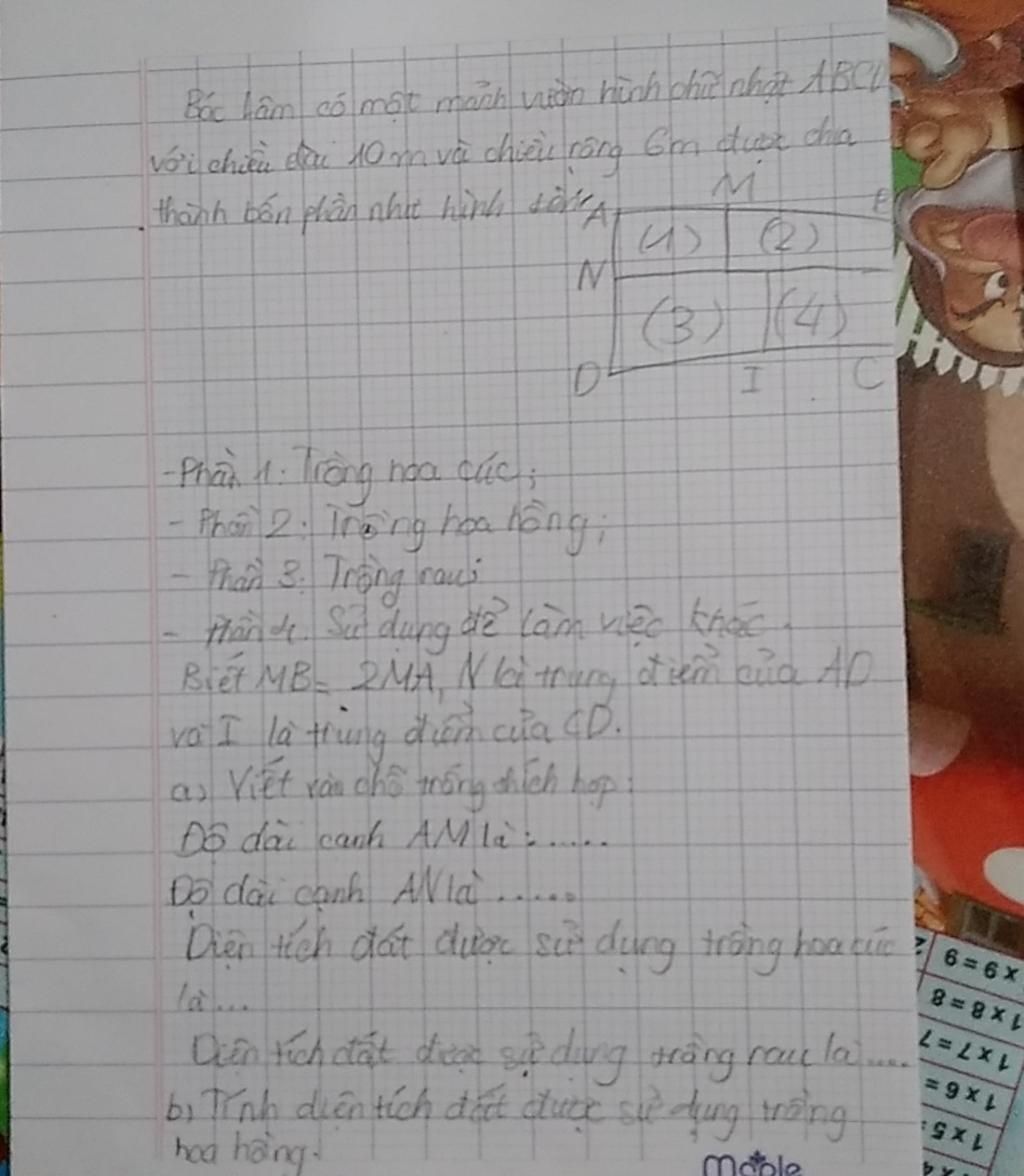 Bác Lâm có một mảnh vườn hình chữ nhật ABCD
với chiều dài 10m và chiều rộng 6m được chia
thành bốn phần như hình
A M B
(1) (2)
N
(3) (4)
D I C
- Phần 1: Trồng hoa cúc;
- Phần 2: Trồng hoa hồng;
- Phần 3: Trồng rau;
- Phần 4: Sử dụng để làm việc khác.
Biết MB = 2MA, N là trung điểm của AD
và I là trung điểm của CD.
a) Viết vào chỗ trống thích hợp:
Độ dài cạnh AM là:......
Độ dài cạnh AN là ......
Diện tích đất được sử dụng trồng hoa cúc
là...
Diện tích đất được sử dụng trồng rau là.....
b) Tính diện tích đất được sử dụng trồng
hoa hồng.
maple
x 9 = 9
1 x 8 = 8
1 x 7 = 7
1 x 6 =
1 x 5 =
x 4